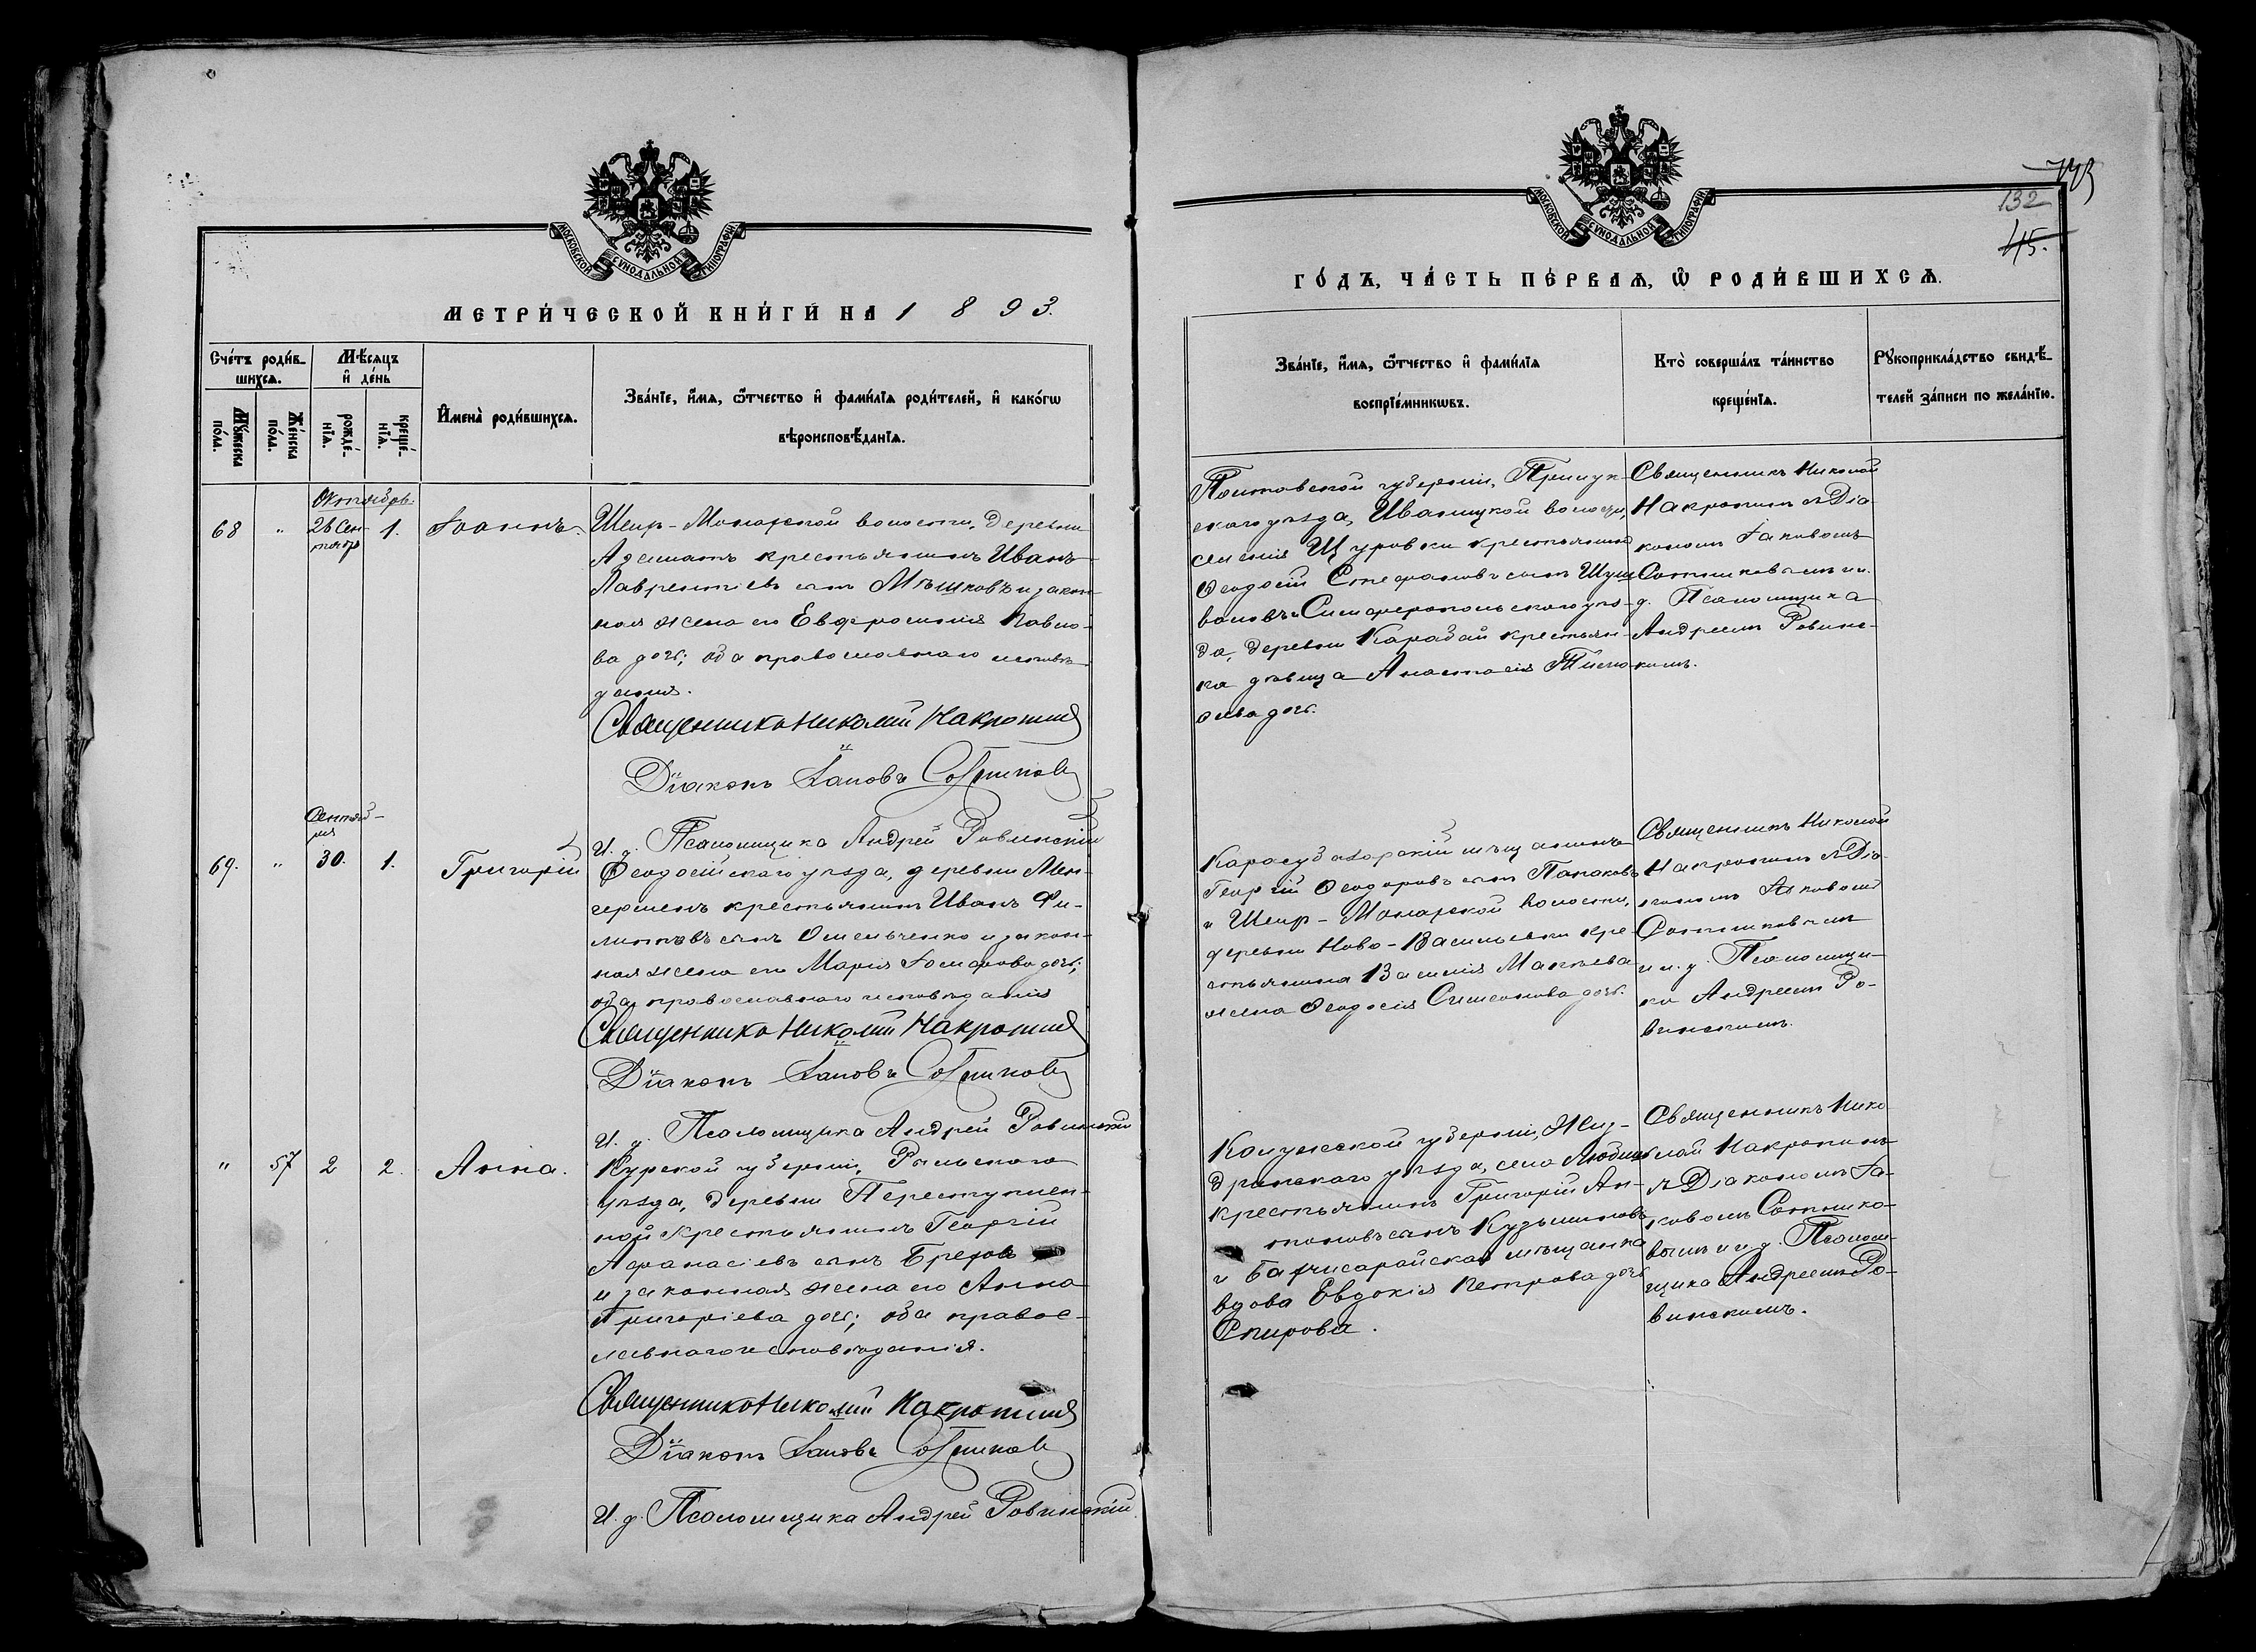 МЕТРИ́ЧЕСКОЙ КНИ́ГИ НА 1893.
МОСКОВСКОЙ СѴНОДАЛЬНОЙ ТИПОГРАФІИ
Сче́тъ роди́в-
шихсѧ.
Мѣ́сѧцъ
и҆ де́нь
Мꙋ́жеска по́ла.
Же́нска по́ла.
рожде́-
нїѧ.
креще́-
нїѧ.
И҆мена̀ роди́вшихсѧ.
Зва́нїе, и҆́мѧ, ѻ҆́тчество и҆ фами́лїѧ роди́телей, и҆ како́гѡ
вѣроисповѣ́данїѧ.
Октябрь.
68 " 28 Сен-
тябр 1. Іоаннъ.
Шеих-Монахской волости, деревни
Аджешатъ крестьянинъ Иванъ
Лаврентіевъ сынъ Мѣшковъ и закон-
ная жена его Евфросинія Павло-
ва дочь; оба православнаго исповѣ-
данія.
Священникъ Николай Накропинъ
Діаконъ Іаковъ Сотниковъ
И. д. Псаломщика Андрей Ровинскій
Сентяб-
ря
69. " 30. 1. Григорій
Ѳеодосійскаго уѣзда, деревни Мен-
герменъ крестьянинъ Иванъ Фи-
липповъ сынъ Омельченко и закон-
ная жена его Марія Іосифова дочь;
оба православнаго исповѣданія
Священникъ Николай Накропинъ
Діаконъ Іаковъ Сотниковъ
И. д. Псаломщика Андрей Ровинскій
" 57 2 2. Анна.
Курской губерніи, Рыльскаго
уѣзда, деревни Переступлен-
ной крестьянинъ Георгій
Аѳанасіевъ сынъ Брехов
и законная жена его Анна
Григоріева дочь; оба правос-
лавнаго исповѣданія.
Священникъ Николай Накропинъ
Діаконъ Іаковъ Сотниковъ
И. д. Псаломщика Андрей Ровинскій
132
45.
МОСКОВСКОЙ СѴНОДАЛЬНОЙ ТИПОГРАФІИ
ГО́ДЪ, ЧА́СТЬ ПЕ́РВАѦ, Ѽ РОДИ́ВШИХСѦ.
Зва́нїе, и҆́мѧ, ѻ҆́тчество и҆ фами́лїѧ
воспрїе́мникѡвъ.
Кто̀ соверша́лъ та́инство
креще́нїѧ.
Рꙋкоприкла́дство свидѣ́-
телей за́писи по жела́нїю.
Полтавской губерніи, Прилук-
скаго уѣзда, Иваницкой волости,
селенія Щуровки крестьянинъ
Ѳеодосій Стефановъ сынъ
Симферопольскаго уѣз-
да, деревни Карабай крестьян-
ка дѣвица Анастасія Тимо-
ѳеева дочь.
Священникъ Николай
Накропинъ съ Діа-
кономъ Іаковомъ
Сотниковымъ и и.
д. Псаломщика
Андреемъ Ровинс-
кимъ.
Карасубазарскій мѣщанинъ
Георгій Ѳеодоровъ сынъ Папаковъ
и Шеих-Монахской волости,
деревни Ново-Васильевки кре-
стьянина Василія Макѣева
жена Ѳеодосія Симеонова дочь.
Священникъ Николай
Накропинъ съ Діа-
кономъ Іаковомъ
Сотниковымъ
и и. д. Псаломщи-
ка Андреемъ Ро-
винскимъ.
Калужской губерніи, Жиз-
дринскаго уѣзда, села
крестьянинъ Григорій Ан-
тоновъ сынъ Кузьминовъ
и Бахчисарайская мѣщанка
вдова Евдокія Петрова дочь
Спирова.
Священникъ Нико-
лай Накропинъ
съ Діакономъ Іа-
ковомъ Сотнико-
вымъ и и. д. Псалом-
щика Андреемъ Ро-
винскимъ.